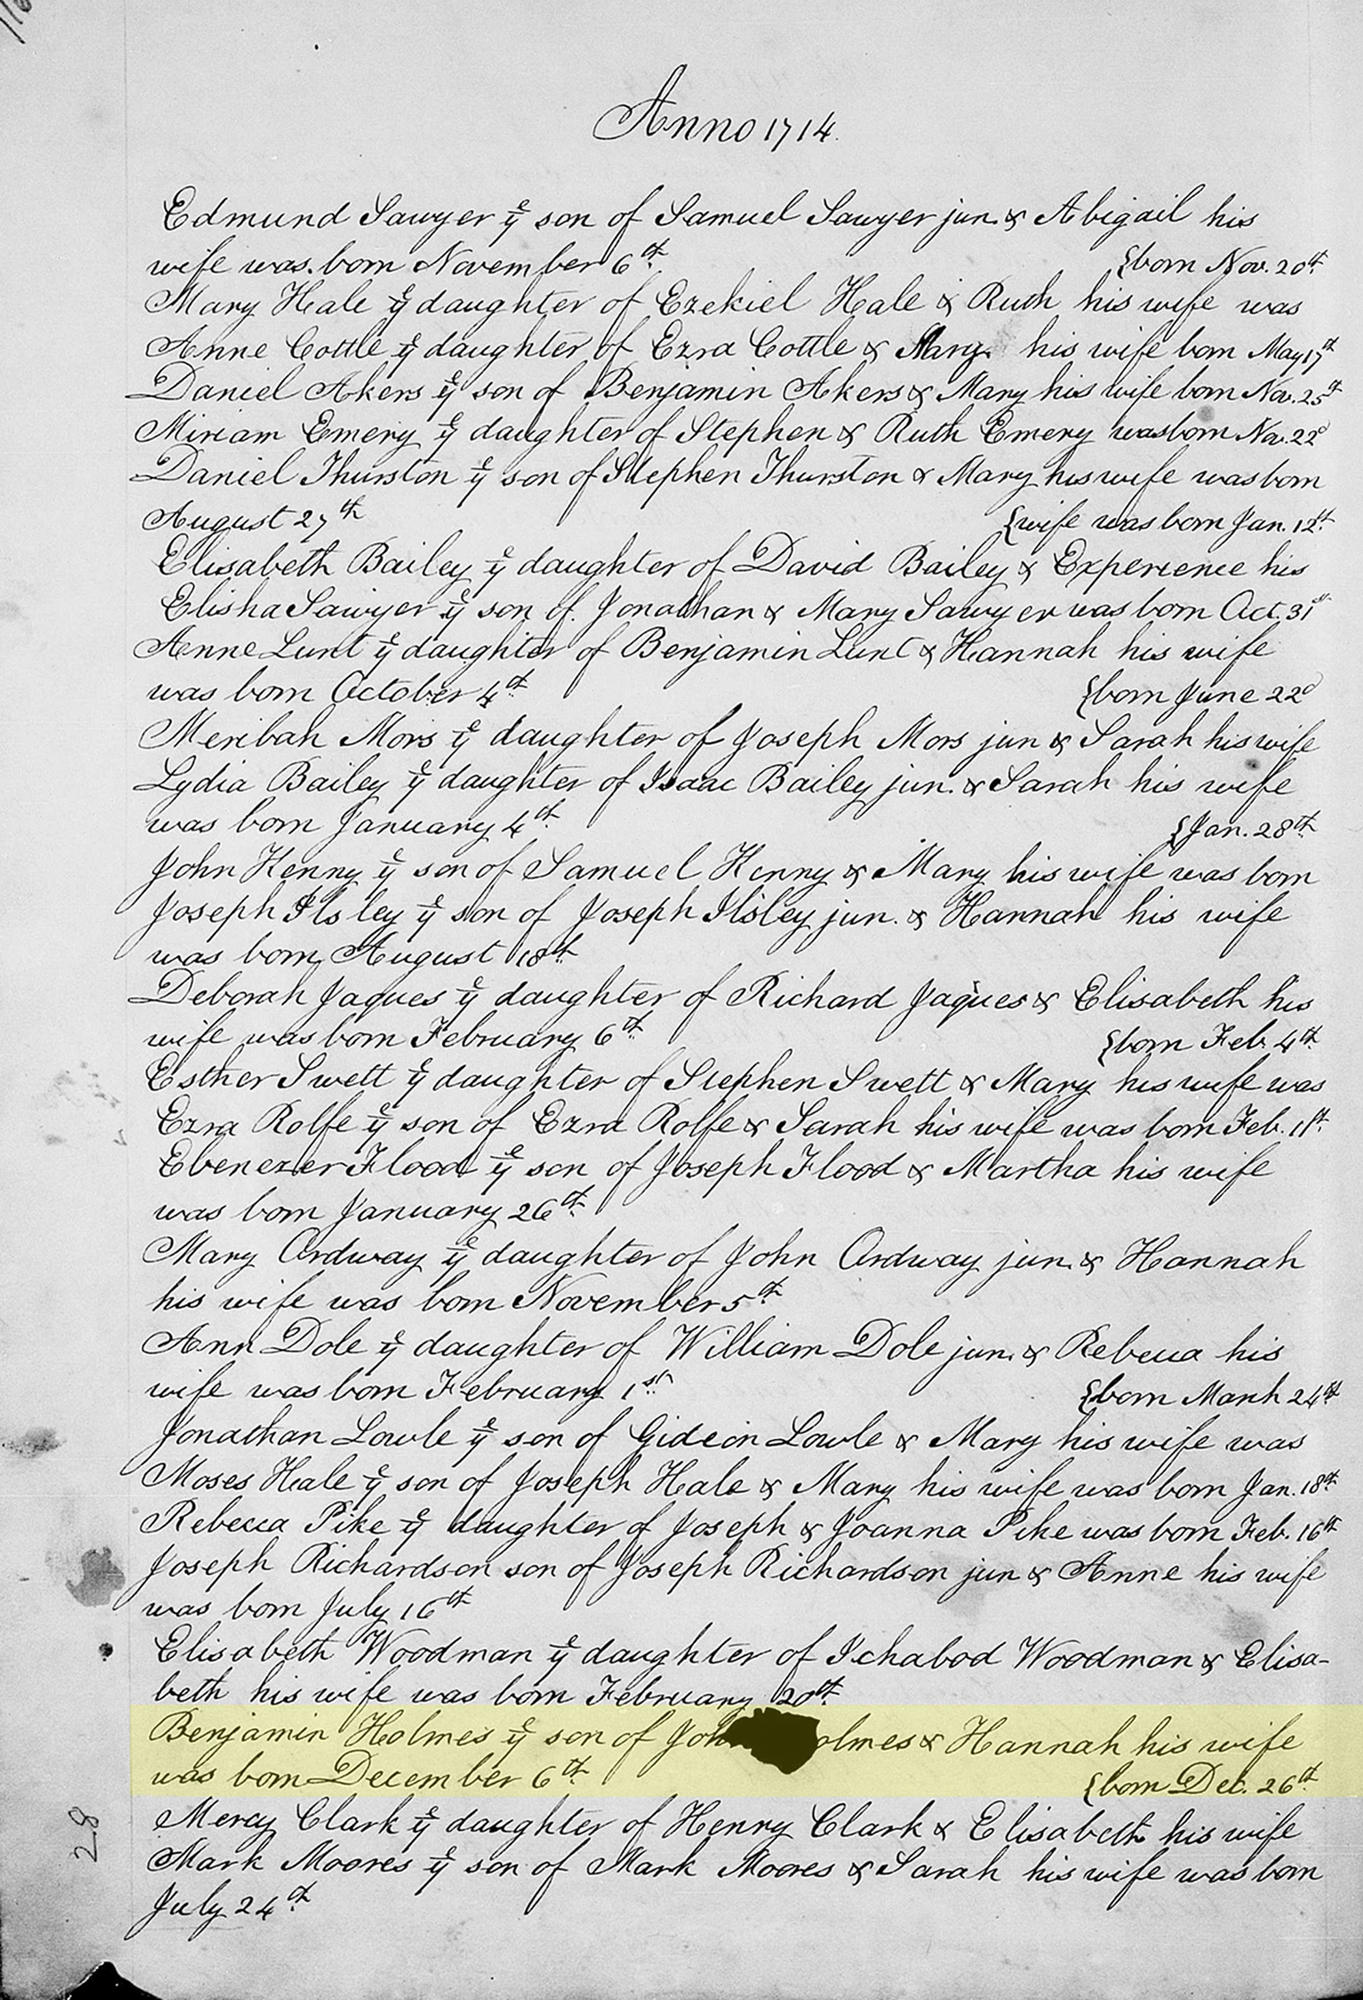 Anno 1714.
Edmund Sawyer yͤ son of Samuel Sawyer jun. & Abigail his
wife was born November 6th. {born Nov. 20th
Mary Hale yͤ daughter of Ezekiel Hale & Ruth his wife was
Anne Cottle yͤ daughter of Ezra Cottle & Mary his wife born May 17th
Daniel Akers yͤ son of Benjamin Akers & Mary his wife born Nov. 25th
Miriam Emery yͤ daughter of Stephen & Ruth Emery was born Nov. 22d
Daniel Thurston yͤ son of Stephen Thurston & Mary his wife was born
August 27th {wife was born Jan. 12th
Elisabeth Bailey yͤ daughter of David Bailey & Experience his
Elisha Sawyer yͤ son of Jonathan & Mary Sawyer was born Oct. 31st
Anne Lunt yͤ daughter of Benjamin Lunt & Hannah his wife
was born October 4th {born June 22d
Meribah Mors yͤ daughter of Joseph Mors jun & Sarah his wife
Lydia Bailey yͤ daughter of Isaac Bailey jun. & Sarah his wife
was born January 4th. {Jan. 28th
John Kenny yͤ son of Samuel Kenny & Mary his wife was born
Joseph Ilsley yͤ son of Joseph Ilsley jun. & Hannah his wife
was born August 18th
Deborah Jaques yͤ daughter of Richard Jaques & Elisabeth his
wife was born February 6th. {born Feb. 4th
Esther Swett yͤ daughter of Stephen Swett & Mary his wife was
Ezra Rolfe yͤ son of Ezra Rolfe & Sarah his wife was born Feb. 11th.
Ebenezer Flood yͤ son of Joseph Flood & Martha his wife
was born January 26th.
Mary Ordway yͤ daughter of John Ordway jun. & Hannah
his wife was born November 5th
Ann Dole yͤ daughter of William Dole jun. & Rebecca his
wife was born February 1st {born March 24th
Jonathan Lowle yͤ son of Gideon Lowle & Mary his wife was
Moses Hale yͤ son of Joseph Hale & Mary his wife was born Jan. 18th
Rebecca Pike yͤ daughter of Joseph & Joanna Pike was born Feb. 16th
Joseph Richardson son of Joseph Richardson jun & Anne his wife
was born July 16th
Elisabeth Woodman yͤ daughter of Ichabod Woodman & Elisa-
beth his wife was born February 20th
Benjamin Holmes yͤ son of Joh olmes & Hannah his wife
was born December 6th. {born Dec. 26th
Mercy Clark yͤ daughter of Henry Clark & Elisabeth his wife
Mark Moores yͤ son of Mark Moores & Sarah his wife was born
July 24th
28